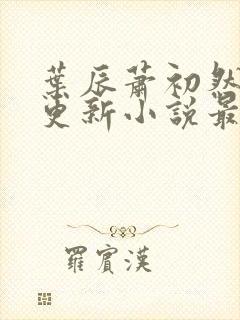 葉辰蕭初然
更新小說最
羅賓漢